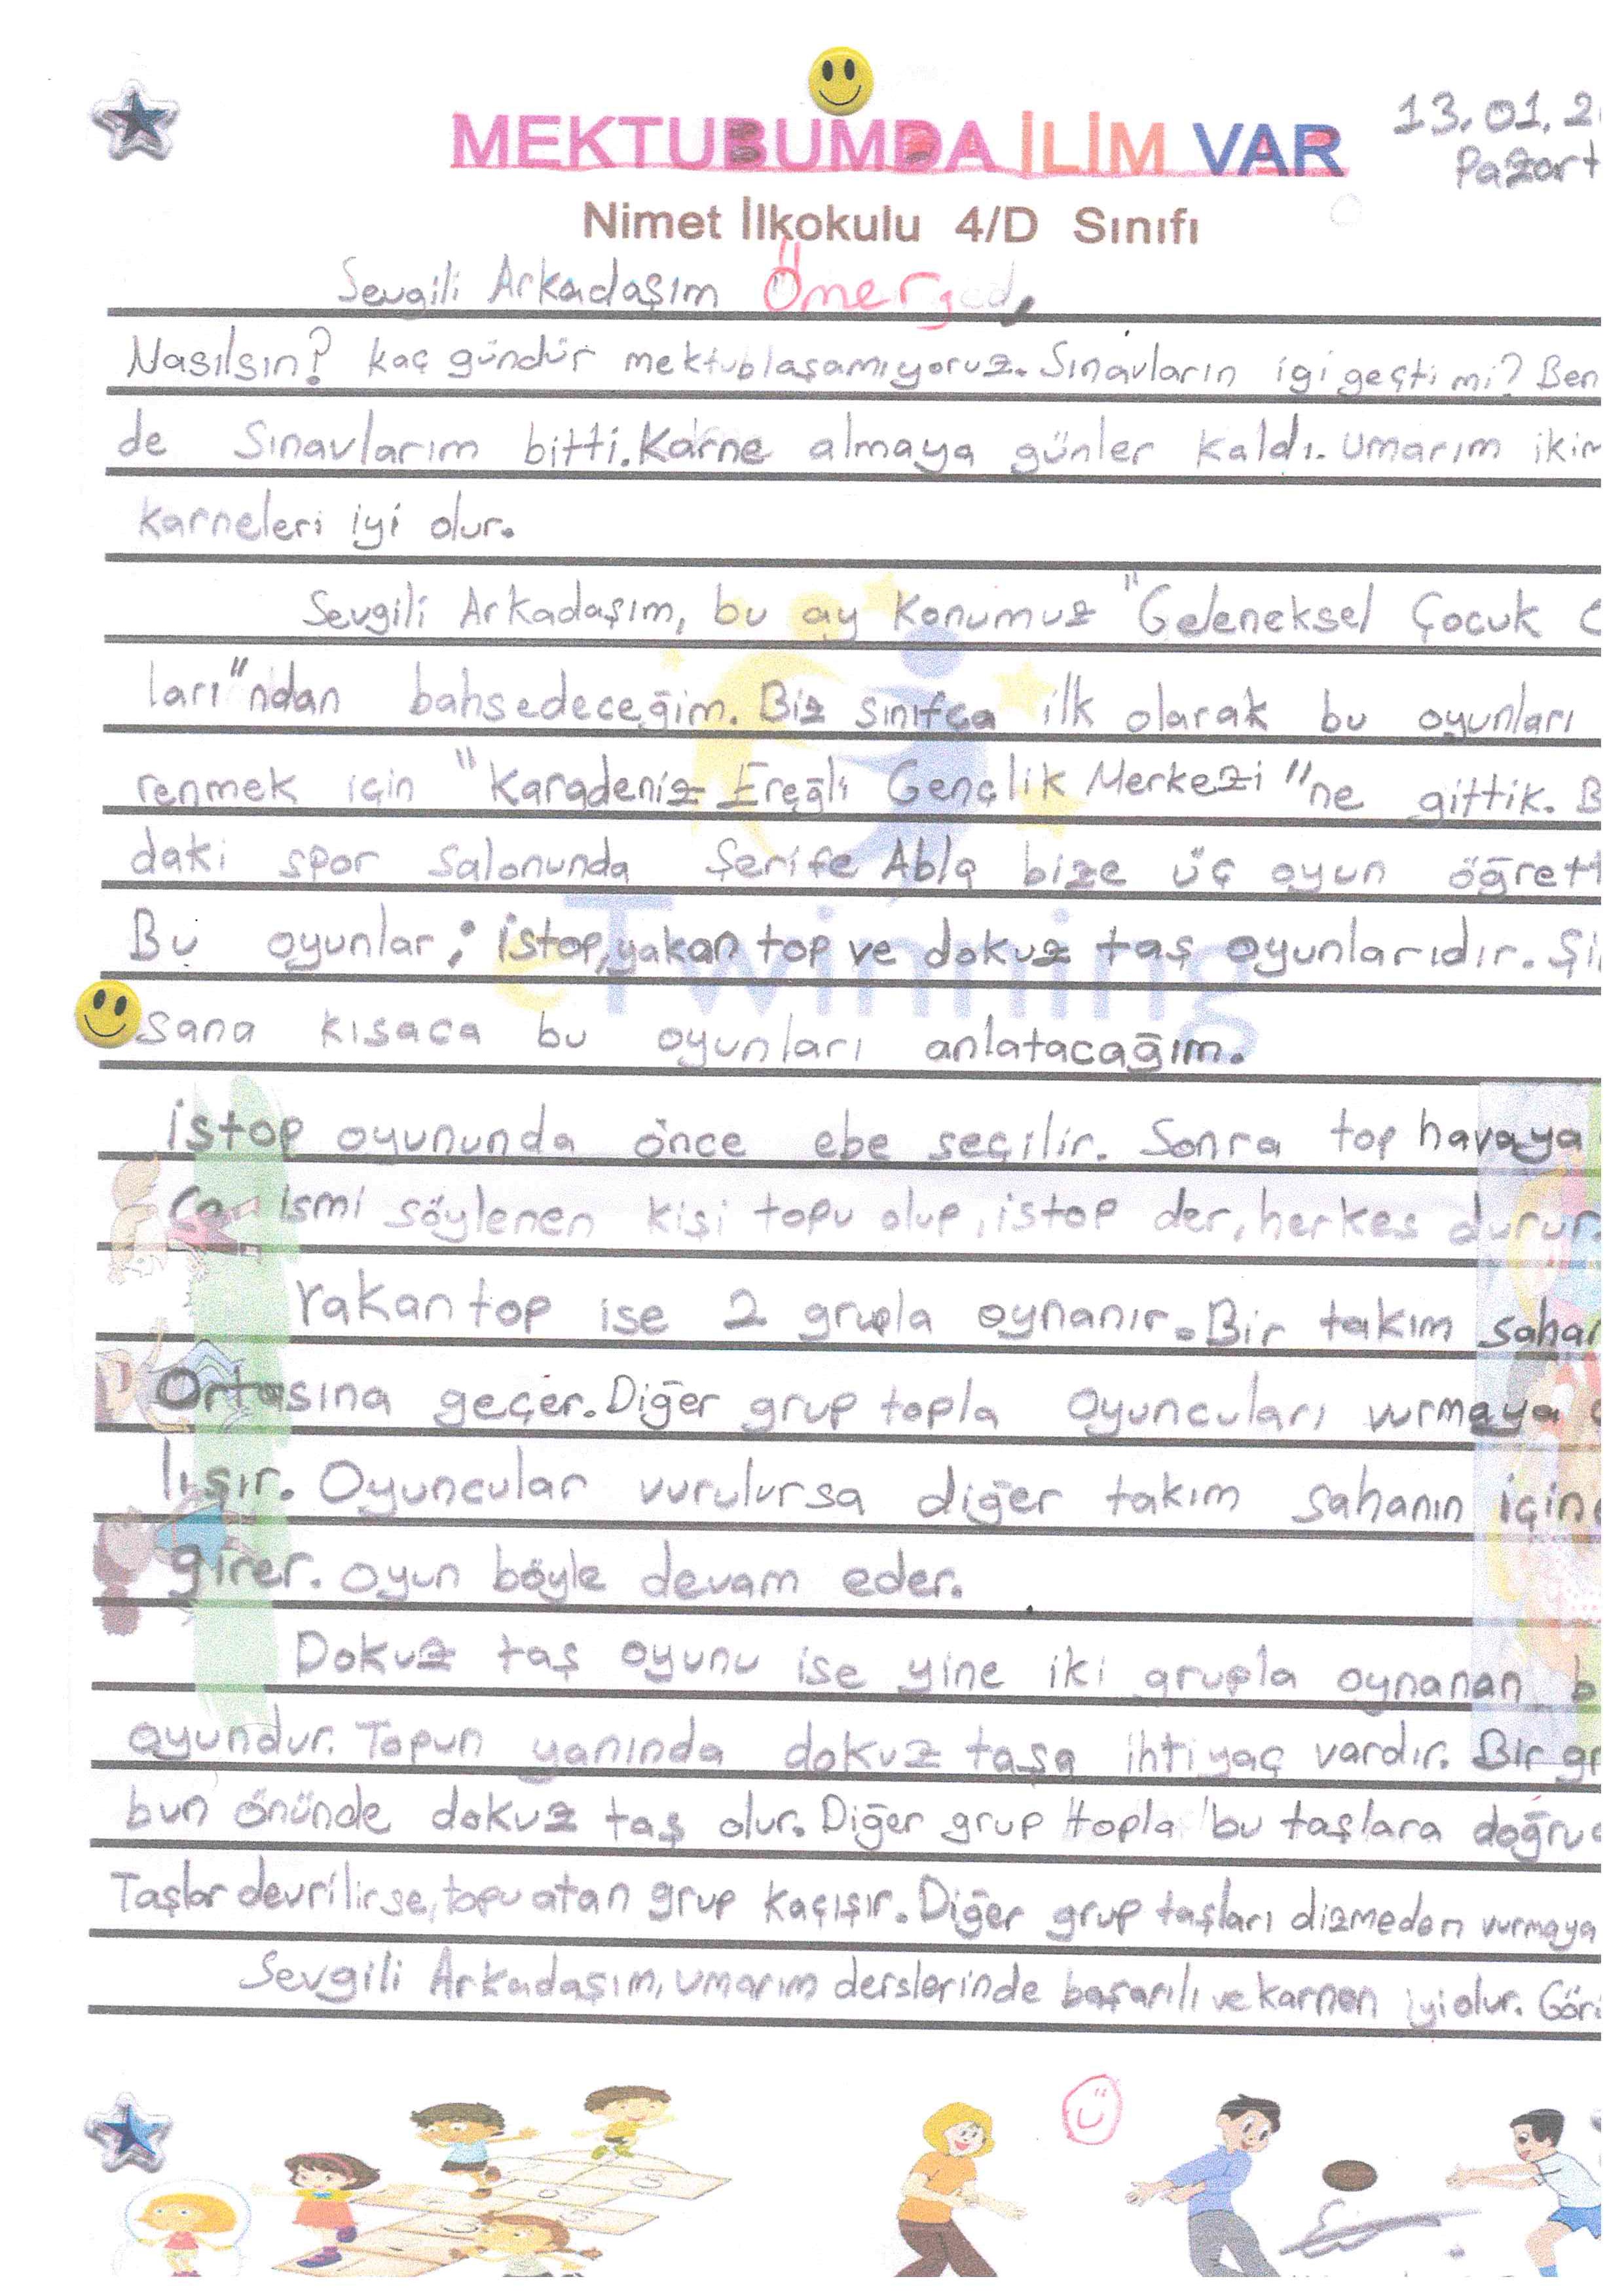 MEKTUBUMDA İLİM VAR
13.01.2
Pazart
Nimet İlkokulu 4/D Sınıfı
Sevgili Arkadaşım Ömer
Nasılsın? kaç gündür mektublaşamıyoruz. Sınavların iyi geçti mi? Ben
de Sınavlarım bitti. Karne almaya günler kaldı. umarım iki
karneleri iyi olur.
Sevgili Arkadaşım, bu ay konumuz "Geleneksel Çocuk
ları"ndan bahsedeceğim. Biz sınıfça ilk olarak bu oyunları
renmek için "Karadeniz Ereğli Gençlik Merkezi"ne gittik. B
daki spor salonunda Şerife Abla bize üç oyun öğrett
Bu oyunlar; istop, yakan top ve dokuz taş oyunlarıdır. Şi
sana kısaca bu oyunları anlatacağım.
istop oyununda önce ebe seçilir. Sonra top havaya
ismi söylenen kişi topu alup, istop der, herkes durur.
Yakan top ise 2 grupla oynanır. Bir takım saha
Ortasına geçer. Diğer grup topla oyuncuları vurmaya
lışır. Oyuncular vurulursa diğer takım sahanın içine
girer. oyun böyle devam eder.
Dokuz taş oyunu ise yine iki grupla oynanan b
oyundur. Topun yanında dokuz taşa ihtiyaç vardır. Bir gr
bun önünde dokuz taş olur. Diğer grup topla bu taşlara doğru
Taşlar devrilirse, topu atan grup kaçışır. Diğer grup taşları dizmeden vurmaya
Sevgili Arkadaşım, umarım derslerinde başarılı ve karnen iyi olur. Gör
eTwinning